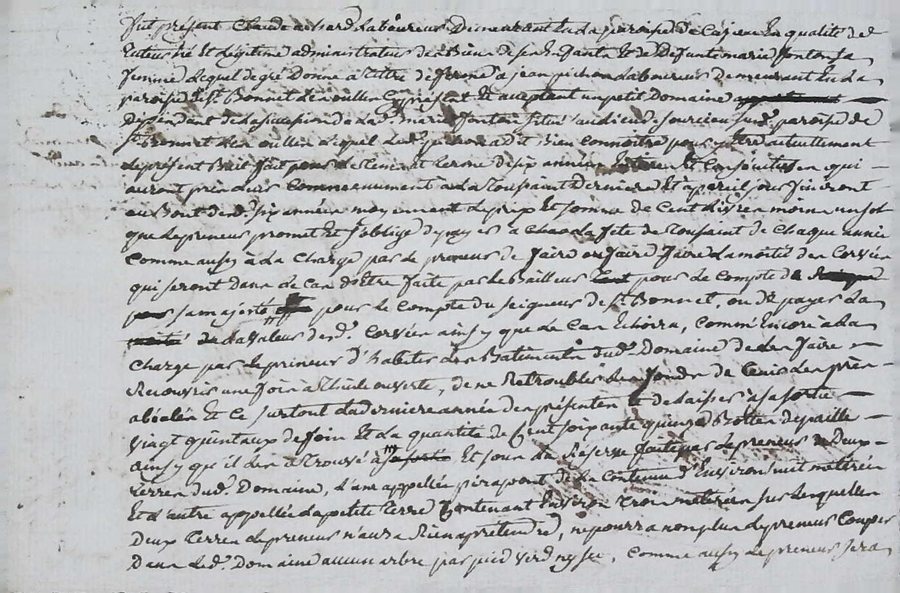 fut présent Claude achard Laboureur Demeurant En La paroisse de Cezieu En qualité de
tuteur né et Légitime administrateur des Biens de ses Enfants Et de Defunte marie fonton sa
femme Lequel de gré Donne à tittre de ferme a jean pichon Laboureur Demeurant En La
paroisse de St. Bonnet Les oulles Cy présent Et acceptant un petit Domaine
Dépendant de La succession de La de. marie fonton situé au Lieu de jourcieu sude. paroisse de
St. Bonnet Les oulles Lequel Led. pichon a dit Bien Connoitre pour y Etre actuellement
Le présent Bail fait pour Le tems et terme de six années Entieres Et Consécutives qui
auront pris Leurs Commencement à La toussaint Derniere Et a pareil jour finiront
au Bout desd. six années moyennant Le prix Et somme de Cent Livres moins un sol
que Le preneur promet Et s'oblige de payer a Chacune fete de toussaint de Chaque année
Comme aussy à La Charge par Le preneur de faire ou faire faire La moitié des Corvées
qui seront dans Le Cas d'être faite par Le Bailleur pour Le Compte de
sa majesté pour Le Compte du seigneur de St. Bonnet, ou de payer La
de La valeur desd. Corvées ainsy que Le Cas Echoira, Comme Encore à La
Charge par Le preneur d'habiter Les Batiments dud. Domaine de Les faire
Recouvrir une fois à thuile ouverte, de ne Retroubler Les fonds de Ceux des prés
et Ce surtout La derniere année des présentes Et de Laisser à sa sortie
vingt quintaux de foin Et La quantité de Cent soixante quinze Bottes de paille
ainsy que il Les a trouvé Et sous La Réserve faite par Le preneur de Deux
terres dud. Domaine, L'une appellée de La Contenue d'Environ huit metérées
Et L'autre appellée La petite terre Contenant Environ trois metérées sur Lesquelles
Deux terres Le preneur n'aura Rien a prétendre, ne pourra non plus Le preneur Couper
Dans Led. Domaine aucun arbre par pied verd ny sec, Comme aussy Le preneur sera